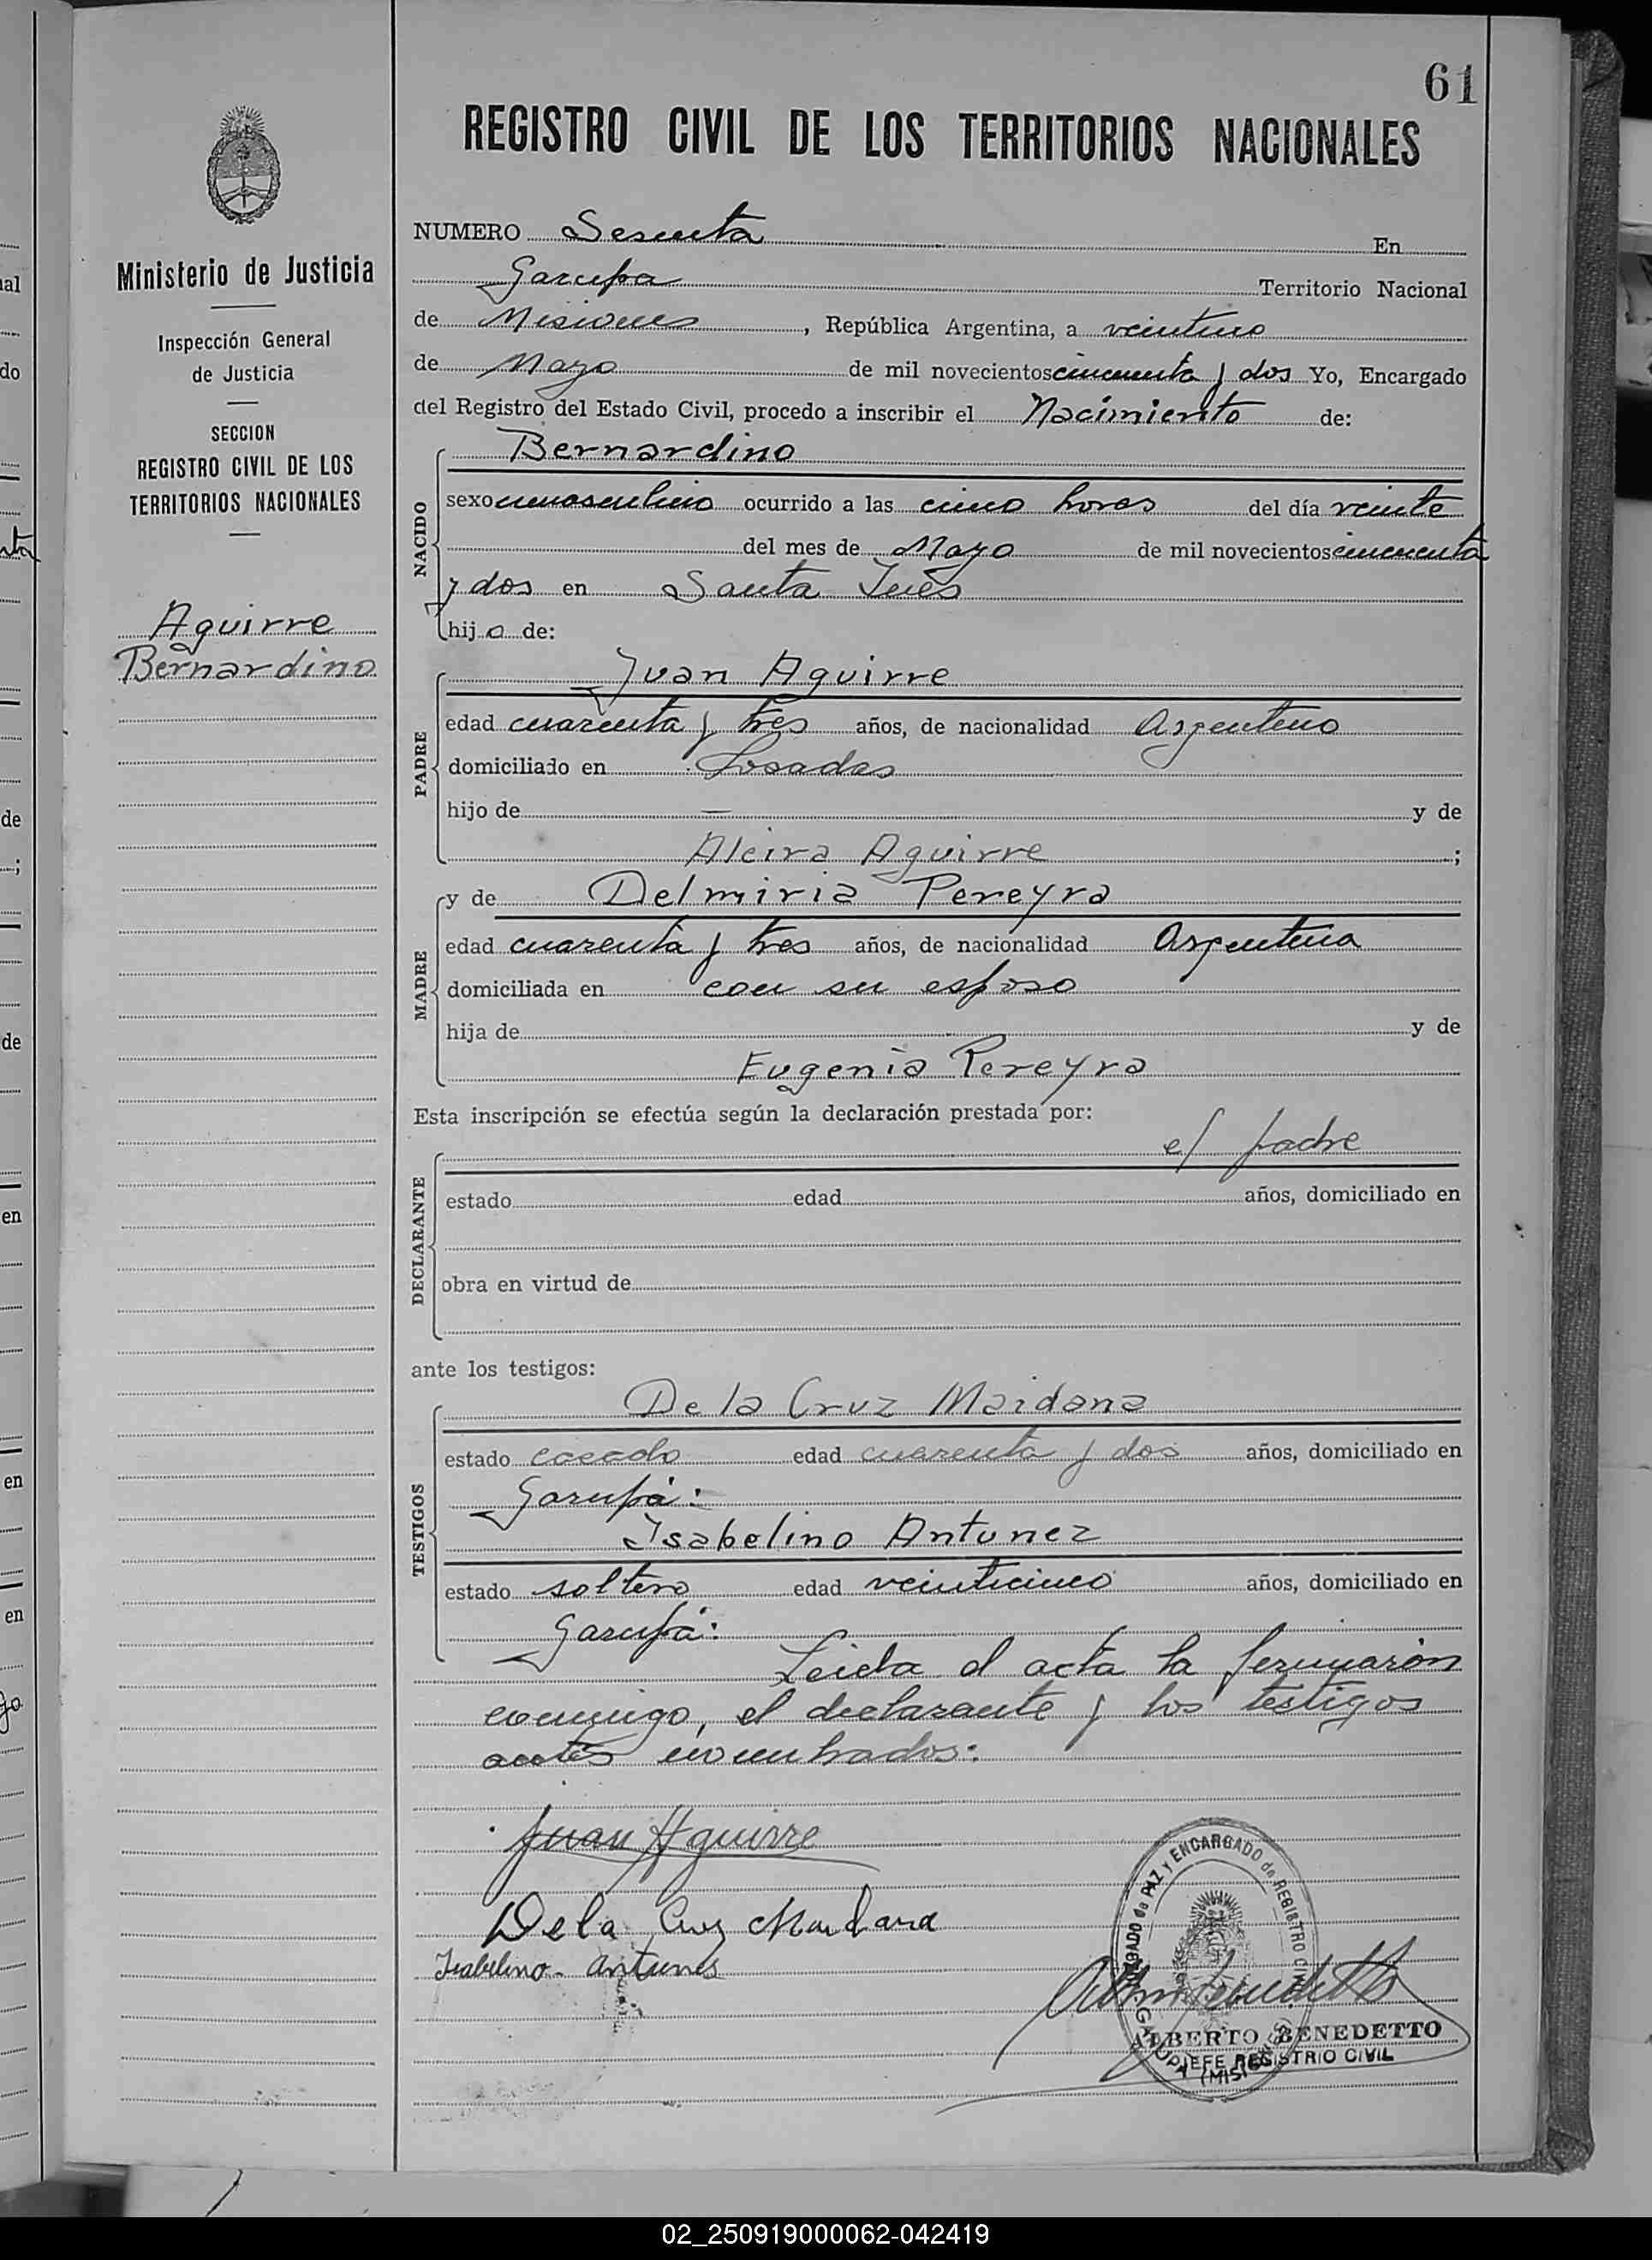 61
REGISTRO CIVIL DE LOS TERRITORIOS NACIONALES
Ministerio de Justicia
Inspección General
de Justicia
SECCION
REGISTRO CIVIL DE LOS
TERRITORIOS NACIONALES
Aguirre
Bernardino
NUMERO Sesenta En
Garupa Territorio Nacional
de Misiones, República Argentina, a veintiuno
de Mayo de mil novecientos cincuenta y dos Yo, Encargado
del Registro del Estado Civil, procedo a inscribir el Nacimiento de:
NACIDO
Bernardino
sexo masculino ocurrido a las cinco horas del día veinte
del mes de Mayo de mil novecientos cincuenta
y dos en Santa Inés
hijo de:
PADRE
Juan Aguirre
edad cuarenta y tres años, de nacionalidad Argentino
domiciliado en Posadas
hijo de — y de
Alcira Aguirre ;
MADRE
y de Delmiria Pereyra
edad cuarenta y tres años, de nacionalidad Argentina
domiciliada en con su esposo
hija de y de
Eugenia Pereyra
Esta inscripción se efectúa según la declaración prestada por:
DECLARANTE
el padre
estado edad años, domiciliado en
obra en virtud de
ante los testigos:
TESTIGOS
De la Cruz Maidana
estado casado edad cuarenta y dos años, domiciliado en
Garupá:
Isabelino Antunez
estado soltero edad veinticinco años, domiciliado en
Garupá:
Leida el acta la firmarón
conmigo, el declarante y los testigos
antes nombrados:
Juan Aguirre
De la Cruz Maidana
Isabelino Antunes
JUZGADO de PAZ y ENCARGADO de REGISTRO CIVIL
GARUPA (MISIONES)
ALBERTO BENEDETTO
JEFE REGISTRIO CIVIL
02_250919000062-042419